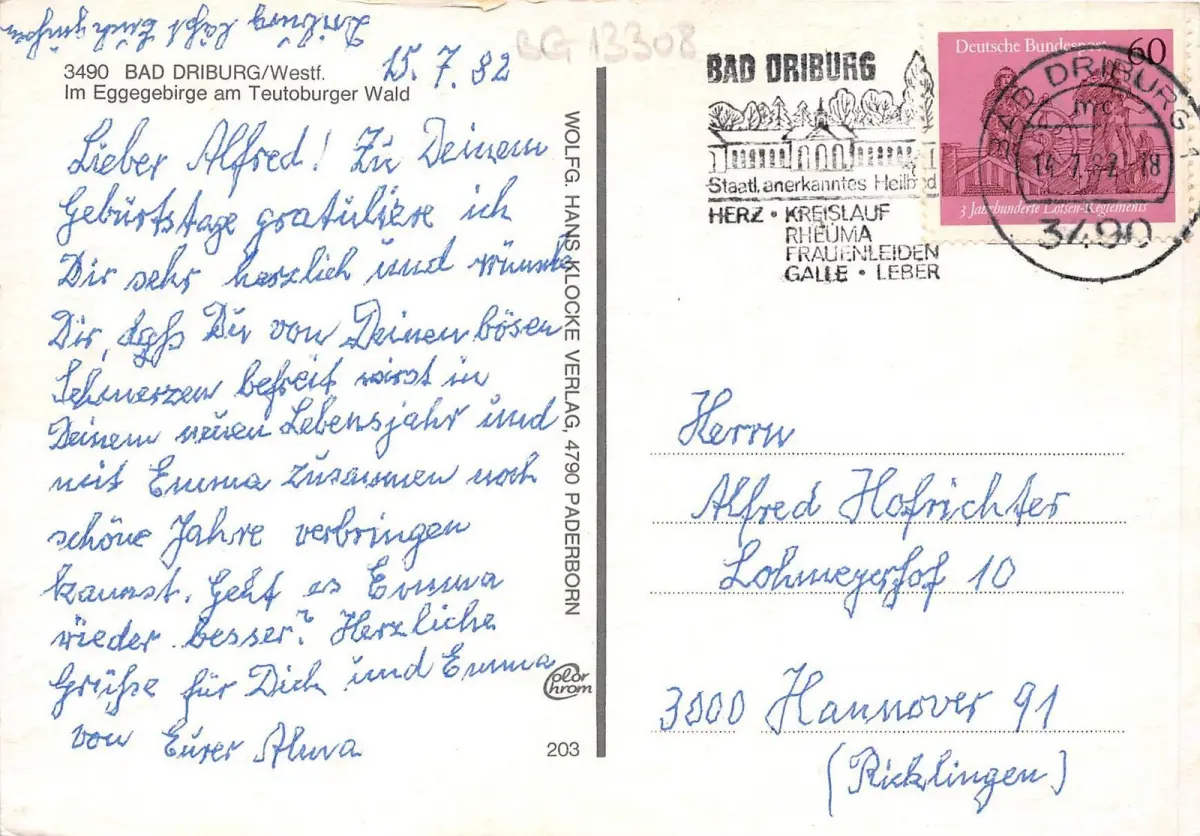 BG 13308
3490 BAD DRIBURG/Westf.
Im Eggegebirge am Teutoburger Wald
15.7.82
Lieber Alfred! Zu Deinem
Geburtstage gratuliere ich
Dir sehr herzlich und wünsche
Dir, daß Du von Deinen bösen
Schmerzen befreit wirst in
Deinem neuen Lebensjahr und
mit Emma zusammen noch
schöne Jahre verbringen
kannst. Geht es Emma
wieder besser? Herzliche
Grüße für Dich und Emma
von Eurer
läßt Euch grüßen
WOLFG. HANS KLOCKE VERLAG, 4790 PADERBORN
Color
Chrom
203
BAD DRIBURG
Staatl. anerkanntes Heilbad
HERZ • KREISLAUF
RHEUMA
FRAUENLEIDEN
GALLE • LEBER
Deutsche Bundespost 60
3 Jahrhunderte Lotsen-Reglements
BAD DRIBURG 1
mc
14.7.82-18
3490
Herrn
Alfred Hofrichter
Lohmeyerhof 10
3000 Hannover 91
(Ricklingen)